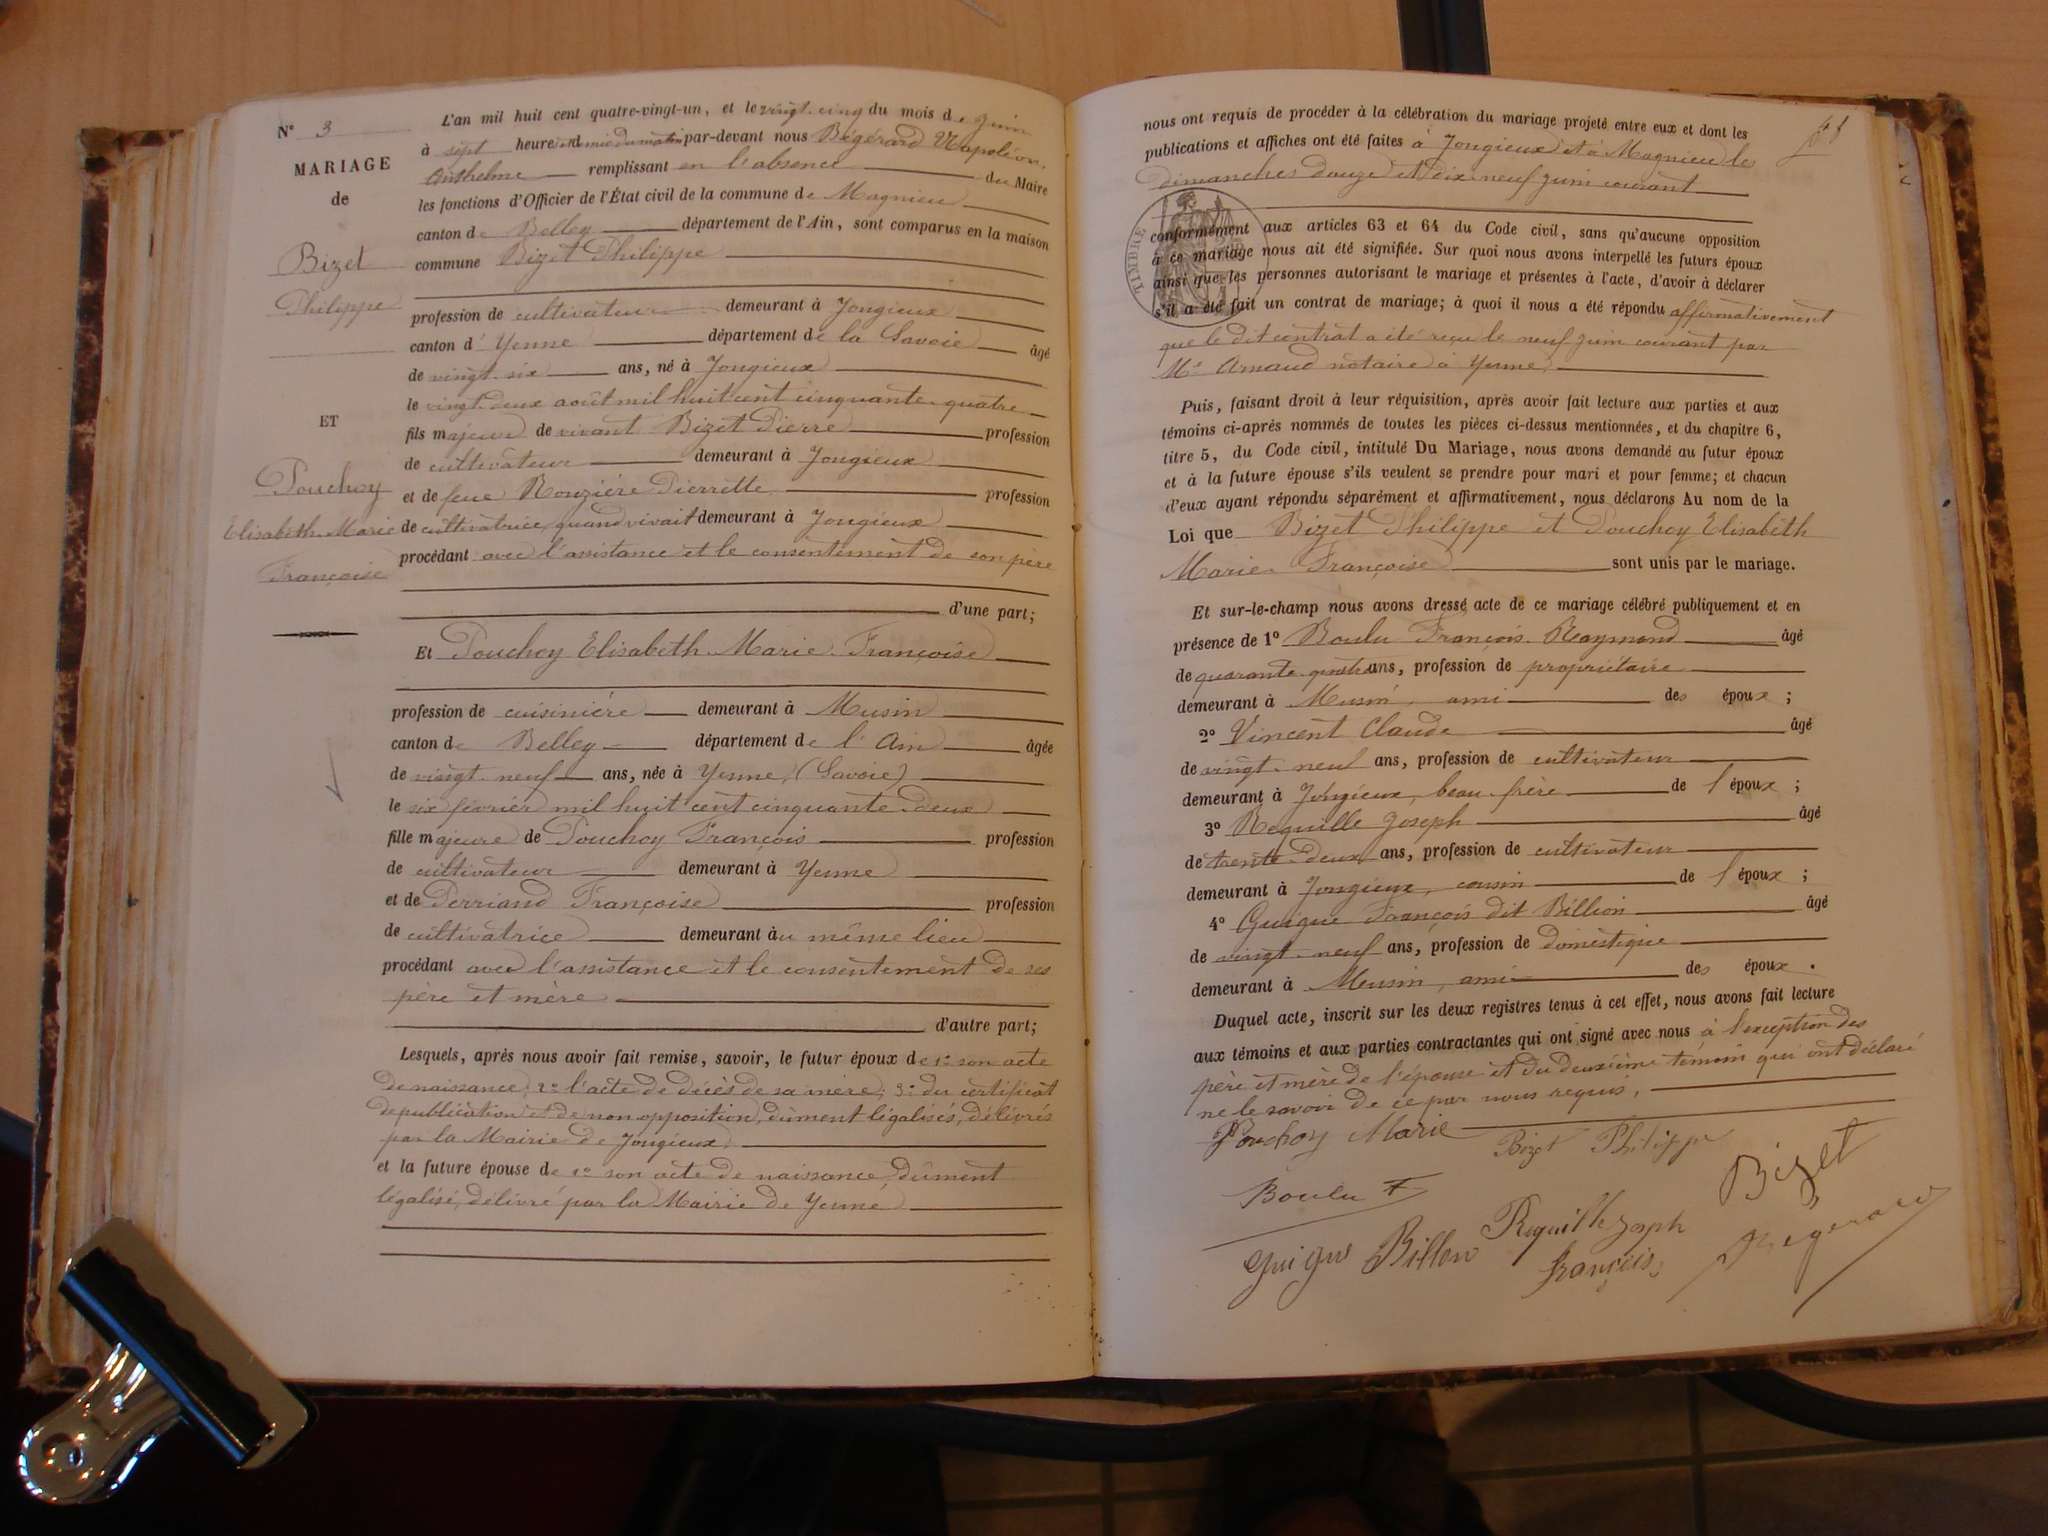 N° 3
MARIAGE
de
Bizet
Philippe
ET
Pouchoy
Elisabeth Marie
Françoise
L'an mil huit cent quatre-vingt-un, et le vingt cinq du mois de juin
à sept heures et demie du matin par-devant nous Bégérard Napoléon,
Anthelme remplissant en l'absence du Maire
les fonctions d'Officier de l'État civil de la commune de Magnieu
canton de Belley département de l'Ain, sont comparus en la maison
commune Bizet Philippe
profession de cultivateur demeurant à Jongieux
canton d'Yenne département de la Savoie âgé
de vingt-six ans, né à Jongieux
le vingt-deux août mil huit cent cinquante-quatre
fils majeur de vivant Bizet Pierre profession
de cultivateur demeurant à Jongieux
et de feue Rouzière Pierrette profession
de cultivatrice, quand vivait demeurant à Jongieux
procédant avec l'assistance et le consentement de son père
d'une part;
Et Pouchoy Elisabeth Marie Françoise
profession de cuisinière demeurant à Musin
canton de Belley département de l'Ain âgée
de vingt-neuf ans, née à Yenne, (Savoie)
le six février mil huit cent cinquante-deux
fille majeure de Pouchoy François profession
de cultivateur demeurant à Yenne
et de Perriand Françoise profession
de cultivatrice demeurant au même lieu
procédant avec l'assistance et le consentement de ses
père et mère
d'autre part;
Lesquels, après nous avoir fait remise, savoir, le futur époux de 1° son acte
de naissance; 2° l'acte de décès de sa mère; 3° du certificat
de publication et de non opposition, dûment légalisés, délivrés
par la Mairie de Jongieux
et la future épouse de 1° son acte de naissance, dûment
légalisé, délivré par la Mairie de Yenne
nous ont requis de procéder à la célébration du mariage projeté entre eux et dont les
publications et affiches ont été faites à Jongieux et à Magnieu les
dimanches douze et dix-neuf juin courant
TIMBRE
conformément aux articles 63 et 64 du Code civil, sans qu'aucune opposition
à ce mariage nous ait été signifiée. Sur quoi nous avons interpellé les futurs époux
ainsi que les personnes autorisant le mariage et présentes à l'acte, d'avoir à déclarer
s'il a été fait un contrat de mariage; à quoi il nous a été répondu affirmativement
que le dit contrat a été reçu le neuf juin courant par
Me Arnaud notaire à Yenne
Puis, faisant droit à leur réquisition, après avoir fait lecture aux parties et aux
témoins ci-après nommés de toutes les pièces ci-dessus mentionnées, et du chapitre 6,
titre 5, du Code civil, intitulé Du Mariage, nous avons demandé au futur époux
et à la future épouse s'ils veulent se prendre pour mari et pour femme; et chacun
d'eux ayant répondu séparément et affirmativement, nous déclarons Au nom de la
Loi que Bizet Philippe et Pouchoy Elisabeth
Marie Françoise sont unis par le mariage.
Et sur-le-champ nous avons dressé acte de ce mariage célébré publiquement et en
présence de 1° Boulu François Raymond âgé
de quarante quatre ans, profession de propriétaire
demeurant à Musin, ami des époux;
2° Vincent Claude âgé
de vingt-neuf ans, profession de cultivateur
demeurant à Jongieux, beau-frère de l'époux;
3° Reguille Joseph âgé
de trente-deux ans, profession de cultivateur
demeurant à Jongieux, cousin de l'époux;
4° Guigue François dit Billion âgé
de vingt-neuf ans, profession de domestique
demeurant à Musin, ami des époux.
Duquel acte, inscrit sur les deux registres tenus à cet effet, nous avons fait lecture
aux témoins et aux parties contractantes qui ont signé avec nous à l'exception des
père et mère de l'épouse et du deuxième témoin qui ont déclaré
ne le savoir de ce par nous requis.
Pouchoy Marie Bizet Philippe
Bizet
Boulu F
Reguille Joseph
Guigue Billon François
Begerard